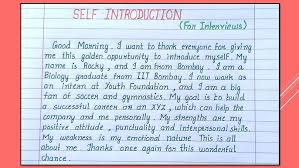 SELF INTRODUCTION
(For Interviews)
Good Morning. I want to thank everyone for giving
me this golden opportunity to introduce myself. My
name is Rocky, and I am from Bombay. I am a
Biology graduate from IIT Bombay. I now work as
an intern at Youth Foundation, and I am a big
fan of soccer and gymnastics. My goal is to build
a successful career as an XYZ, which can help the
company and me personally. My strengths are my
positive attitude, punctuality and interpersonal skills.
My weakness is my emotional nature. This is all
about me. Thanks once again for this wonderful
chance.